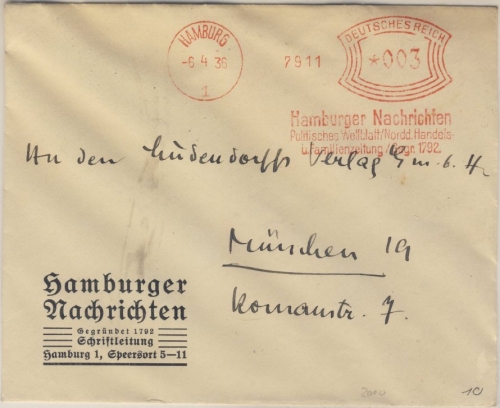 HAMBURG
-6.4.36
1
2911
DEUTSCHES REICH
*003
Hamburger Nachrichten
Politisches Weltblatt/Nordd. Handels-
u. Familienzeitung/Gegr. 1792.
An den Ludendorffs Verlag G.m.b.H.
München 19
Romanstr. 7.
Hamburger
Nachrichten
Gegründet 1792
Schriftleitung
Hamburg 1, Speersort 5—11
10